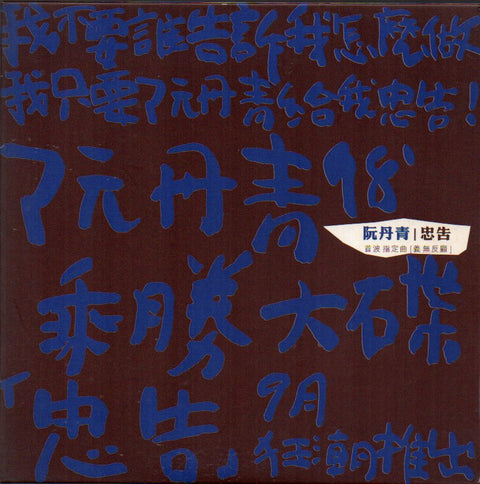 我不要誰告訴我怎麼做
我只要阮丹青給我忠告！
阮丹青98'
阮丹青|忠告
首波指定曲[義無反顧]
乘勝大碟
「忠告」9月
狂潮推出